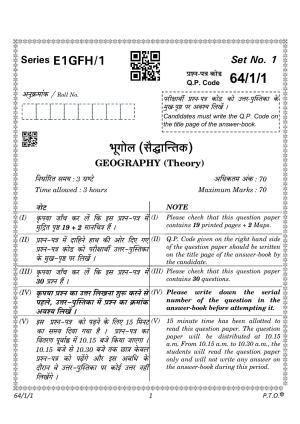 Series E1GFH/1
Set No. 1
प्रश्न-पत्र कोड
Q.P. Code 64/1/1
अनुक्रमांक / Roll No.
परीक्षार्थी प्रश्न-पत्र कोड को उत्तर-पुस्तिका के
मुख-पृष्ठ पर अवश्य लिखें ।
Candidates must write the Q.P. Code on
the title page of the answer-book.
भूगोल (सैद्धान्तिक)
GEOGRAPHY (Theory)
निर्धारित समय : 3 घण्टे
अधिकतम अंक : 70
Time allowed : 3 hours
Maximum Marks : 70
नोट
NOTE
(I) कृपया जाँच कर लें कि इस प्रश्न-पत्र में
मुद्रित पृष्ठ 19 + 2 मानचित्र हैं ।
(I) Please check that this question paper
contains 19 printed pages + 2 Maps.
(II) प्रश्न-पत्र में दाहिने हाथ की ओर दिए गए
प्रश्न-पत्र कोड को परीक्षार्थी उत्तर-पुस्तिका
के मुख-पृष्ठ पर लिखें ।
(II) Q.P. Code given on the right hand side
of the question paper should be written
on the title page of the answer-book by
the candidate.
(III) कृपया जाँच कर लें कि इस प्रश्न-पत्र में
30 प्रश्न हैं ।
(III) Please check that this question paper
contains 30 questions.
(IV) कृपया प्रश्न का उत्तर लिखना शुरू करने से
पहले, उत्तर-पुस्तिका में प्रश्न का क्रमांक
अवश्य लिखें ।
(IV) Please write down the serial
number of the question in the
answer-book before attempting it.
(V) इस प्रश्न-पत्र को पढ़ने के लिए 15 मिनट
का समय दिया गया है । प्रश्न-पत्र का
वितरण पूर्वाह्न में 10.15 बजे किया जाएगा ।
10.15 बजे से 10.30 बजे तक छात्र केवल
प्रश्न-पत्र को पढ़ेंगे और इस अवधि के
दौरान वे उत्तर-पुस्तिका पर कोई उत्तर नहीं
लिखेंगे ।
(V) 15 minute time has been allotted to
read this question paper. The question
paper will be distributed at 10.15
a.m. From 10.15 a.m. to 10.30 a.m., the
students will read the question paper
only and will not write any answer on
the answer-book during this period.
64/1/1
1
P.T.O.